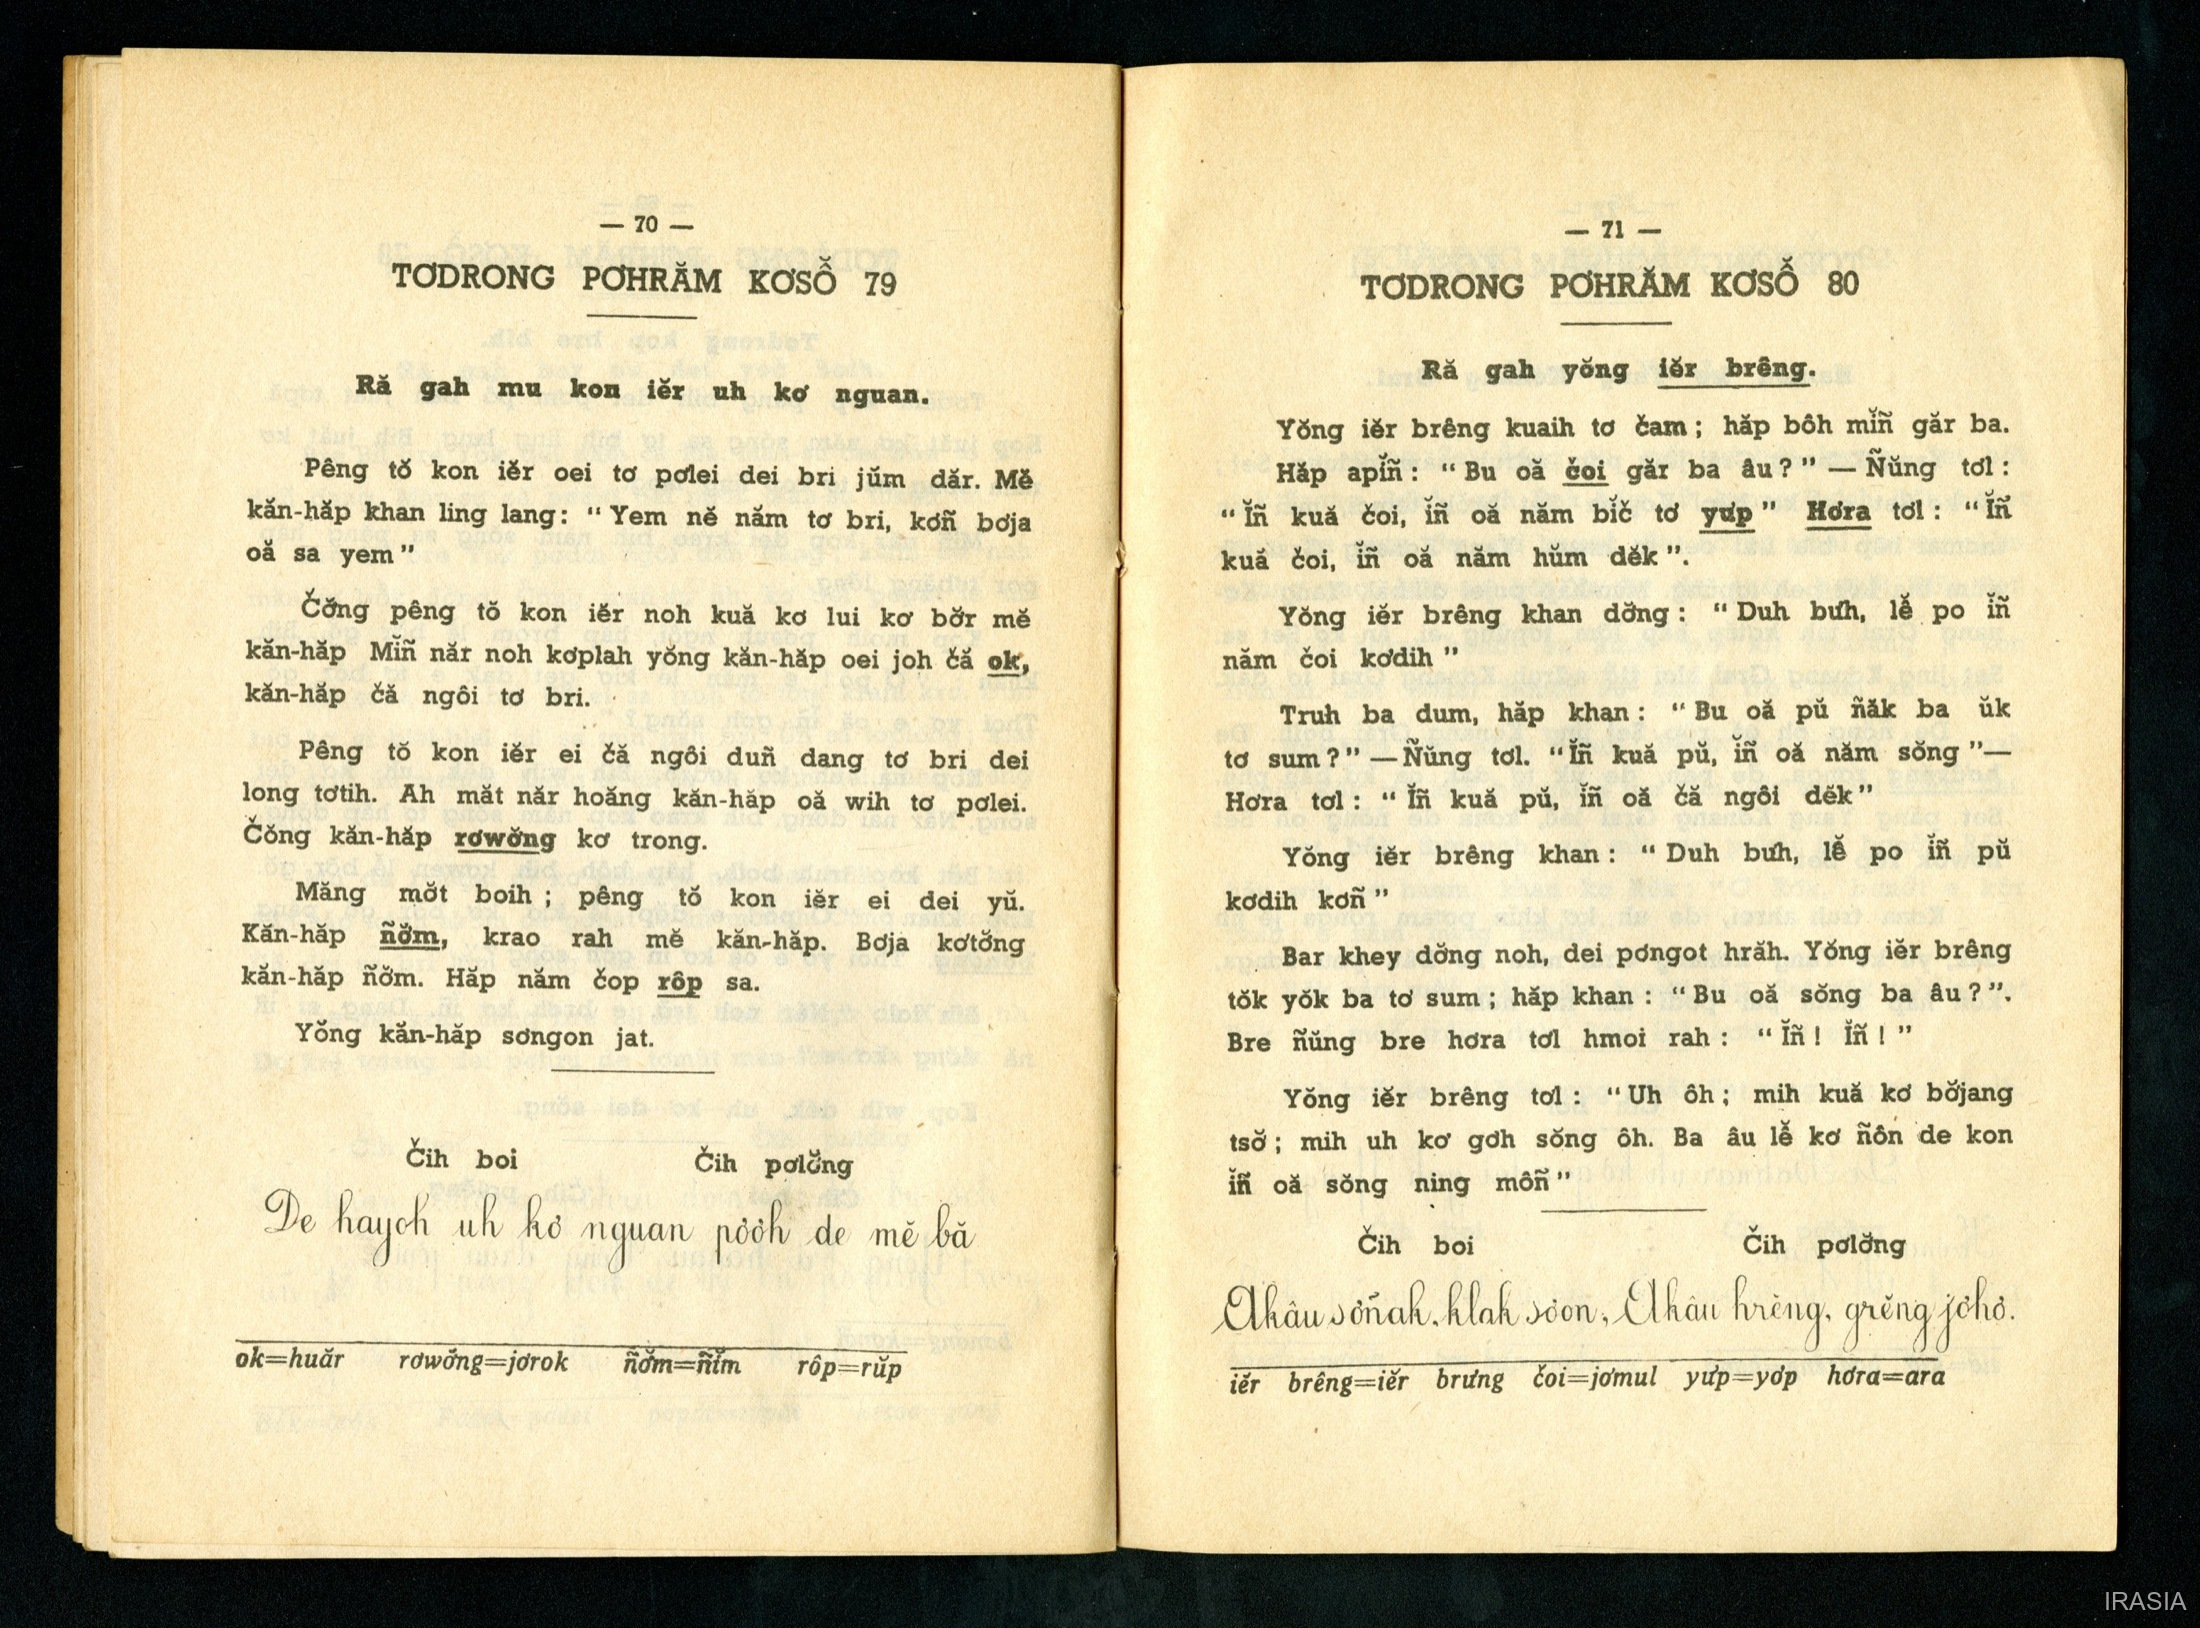 — 70 —
TƠDRONG PƠHRĂM KƠSỐ̆ 79
Ră gah mu kon iĕr uh kơ nguan.
Pêng tŏ kon iĕr oei tơ pơlei dei bri jŭm dăr. Mĕ
kăn-hăp khan ling lang: “Yem nĕ năm tơ bri, kơñ bơja
oă sa yem”
Čơ̆ng pêng tŏ kon iĕr noh kuă kơ lui kơ bơ̆r mĕ
kăn-hăp Mĭñ năr noh kơplah yŏng kăn-hăp oei joh čă ok,
kăn-hăp čă ngôi tơ bri.
Pêng tŏ kon iĕr ei čă ngôi duñ dang tơ bri dei
long tơtih. Ah măt năr hoăng kăn-hăp oă wih tơ pơlei.
Čŏng kăn-hăp rơwơ̆ng kơ trong.
Măng mơ̆t boih ; pêng tŏ kon iĕr ei dei yŭ.
Kăn-hăp ñơ̆m, krao rah mĕ kăn-hăp. Bơja kơtơ̆ng
kăn-hăp ñơ̆m. Hăp năm čop rôp sa.
Yŏng kăn-hăp sơngon jat.
Čih boi Čih pơlơ̆ng
De hayoh uh kơ nguan pơơh de mĕ bă
ok=huăr rơwơ̆ng=jơrok ñơ̆m=ñĭm rôp=rŭp
— 71 —
TƠDRONG PƠHRĂM KƠSỐ̆ 80
Ră gah yŏng iĕr brêng.
Yŏng iĕr brêng kuaih tơ čam ; hăp bôh mĭñ găr ba.
Hăp apĭñ : “Bu oă čoi găr ba âu ?” — Ñŭng tơl :
“Ĭñ kuă čoi, ĭñ oă năm bĭč tơ yưp” Hơra tơl : “Ĭñ
kuă čoi, ĭñ oă năm hŭm dĕk”.
Yŏng iĕr brêng khan dơ̆ng : “Duh bưh, lê̆ po ĭñ
năm čoi kơdih”
Truh ba dum, hăp khan : “Bu oă pŭ ñăk ba ŭk
tơ sum ?” — Ñŭng tơl. “Ĭñ kuă pŭ, ĭñ oă năm sŏng”—
Hơra tơl : “Ĭñ kuă pŭ, ĭñ oă čă ngôi dĕk”
Yŏng iĕr brêng khan : “Duh bưh, lê̆ po ĭñ pŭ
kơdih kơñ”
Bar khey dơ̆ng noh, dei pơngot hrăh. Yŏng iĕr brêng
tŏk yŏk ba tơ sum ; hăp khan : “Bu oă sŏng ba âu ?”.
Bre ñŭng bre hơra tơl hmoi rah : “Ĭñ ! Ĭñ !”
Yŏng iĕr brêng tơl : “Uh ôh ; mih kuă kơ bơ̆jang
tsơ̆ ; mih uh kơ gơh sŏng ôh. Ba âu lê̆ kơ ñôn de kon
ĭñ oă sŏng ning môñ”
Čih boi Čih pơlơ̆ng
Akâu sơñak, klak sơon, Akâu hrĕng, grĕng jơhơ.
iĕr brêng=iĕr brưng čoi=jơmul yưp=yơp hơra=ara
IRASIA